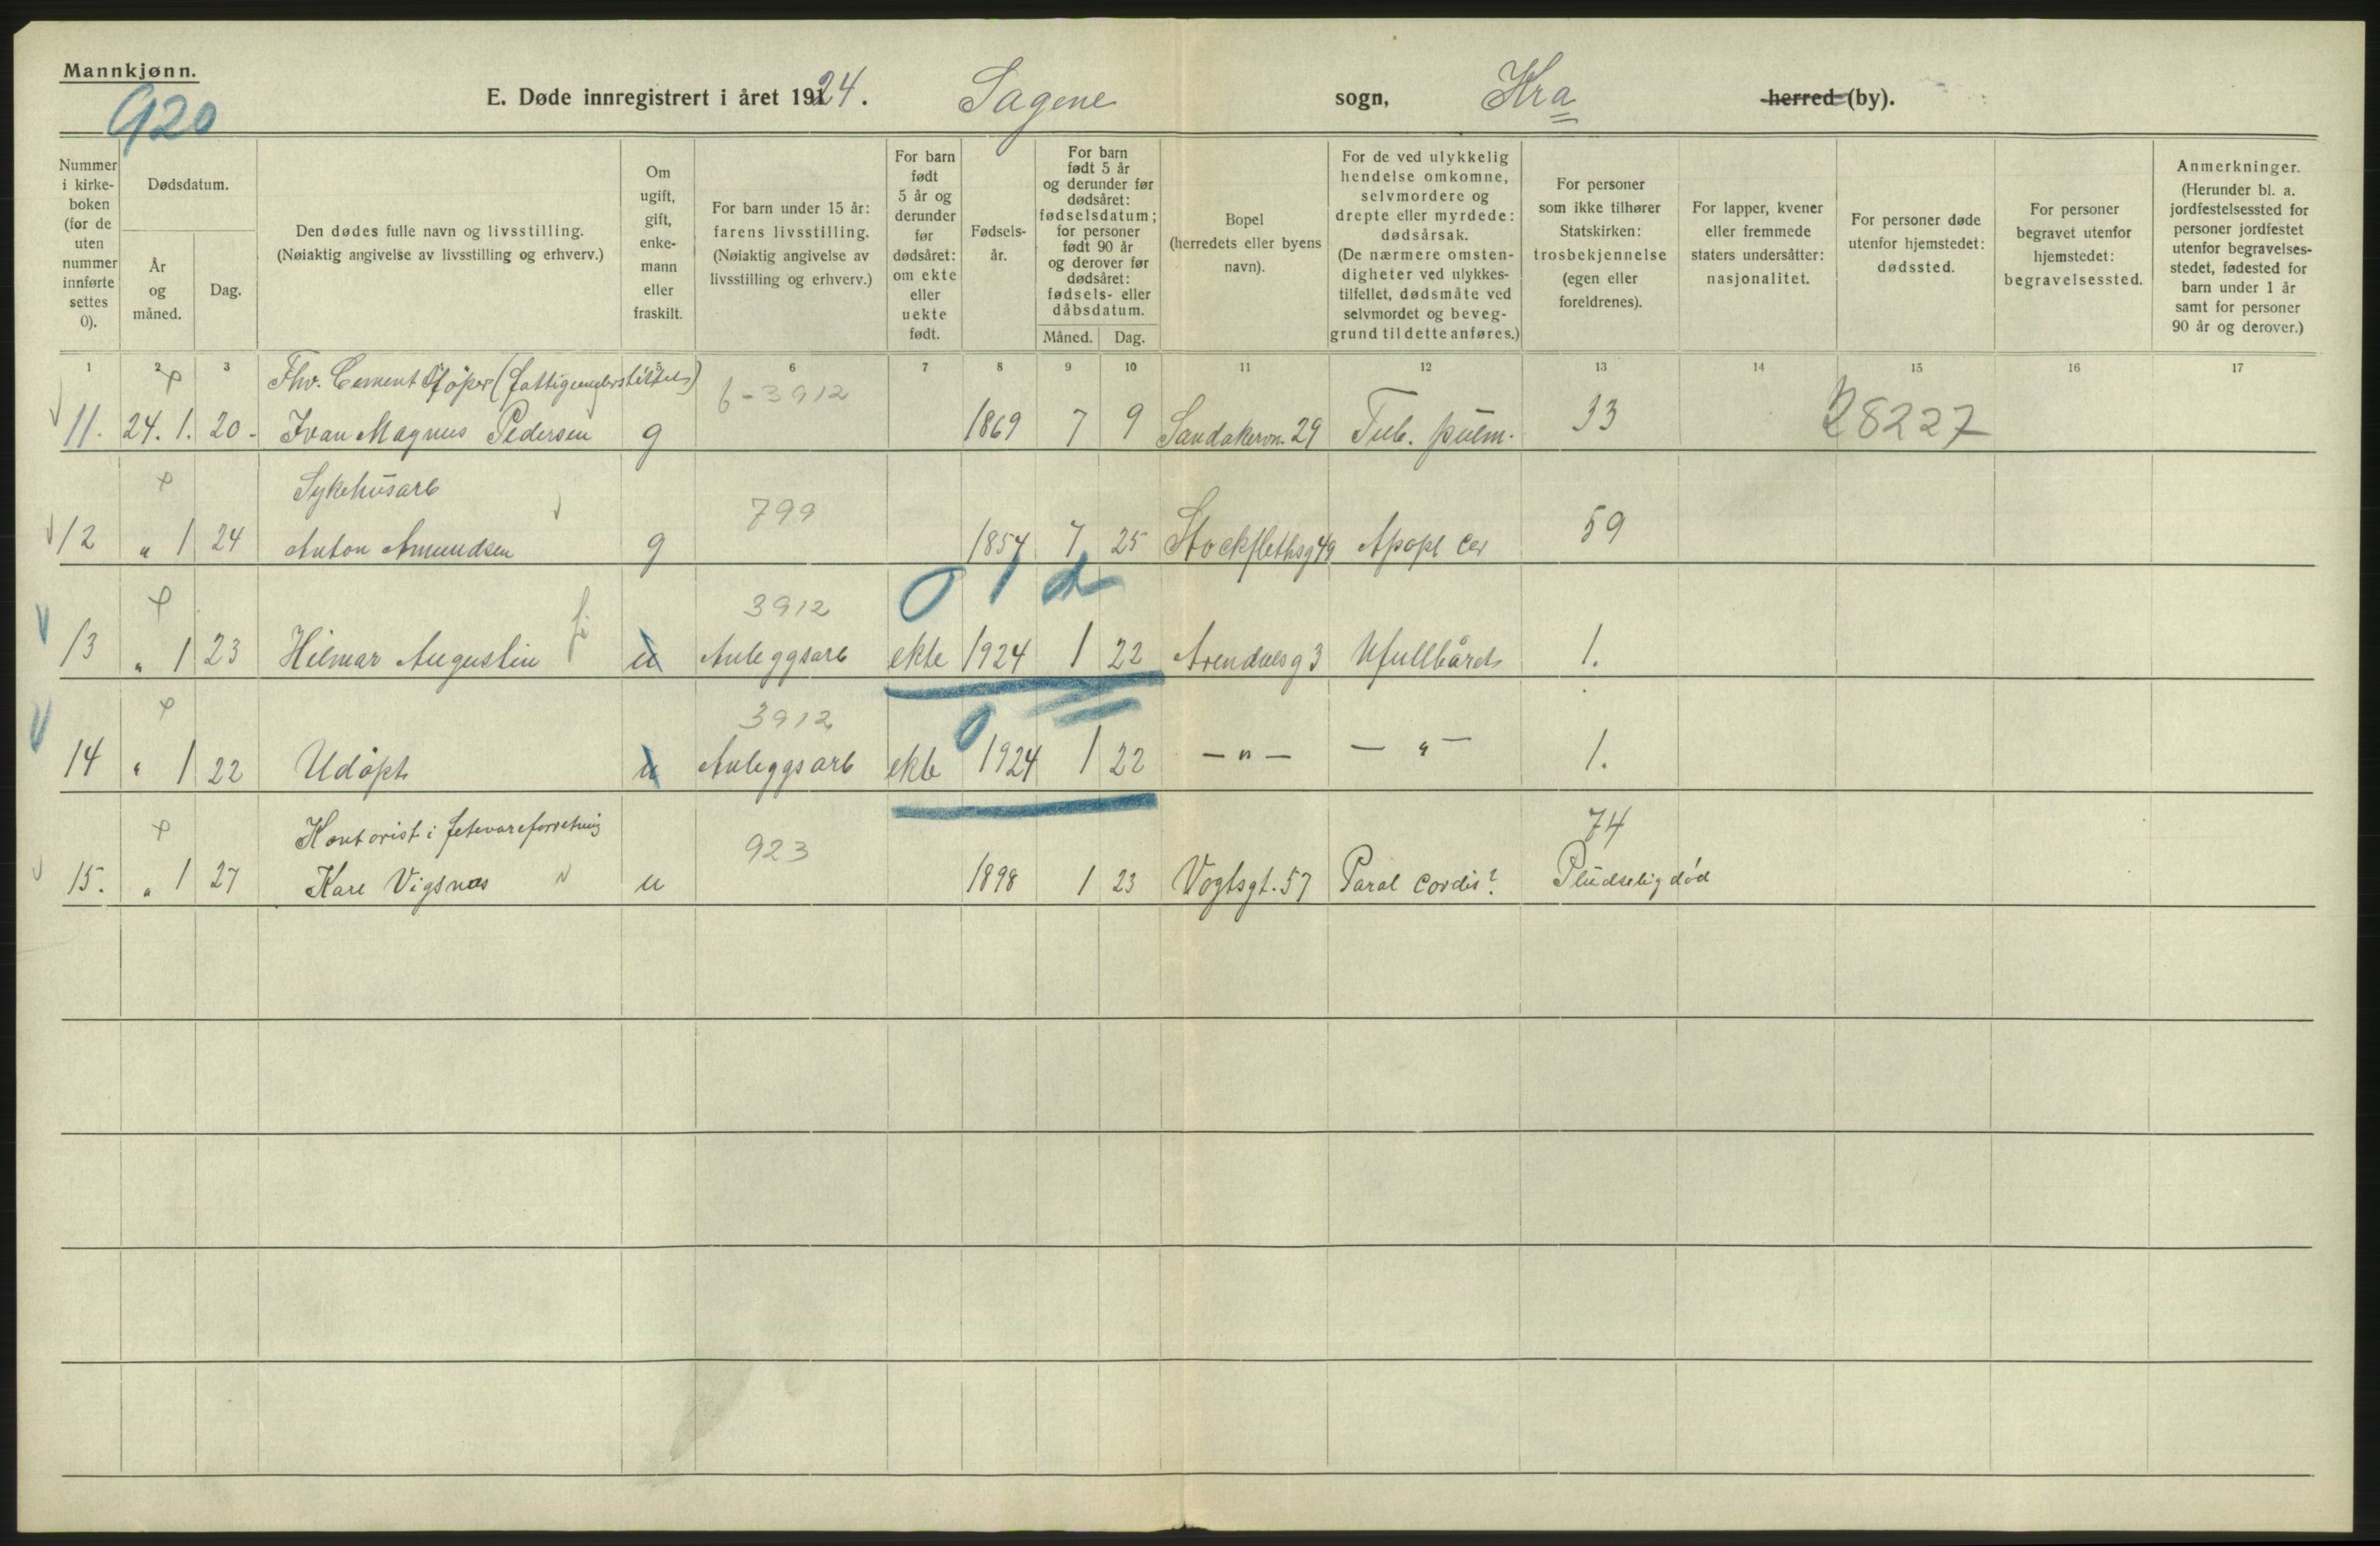 Mannkjønn.
920
E. Døde innregistrert i året 1924. Sagene sogn, Kra herred (by).
Nummer i kirke-boken (for de uten nummer innførte settes 0).
Dødsdatum.
År og måned.
Dag.
Den dødes fulle navn og livsstilling.
(Nøiaktig angivelse av livsstilling og erhverv.)
Om ugift, gift, enke-mann eller fraskilt.
For barn under 15 år: farens livsstilling.
(Nøiaktig angivelse av livsstilling og erhverv.)
For barn født 5 år og derunder før dødsåret: om ekte eller uekte født.
Fødsels-år.
For barn født 5 år og derunder før dødsåret: fødselsdatum; for personer født 90 år og derover før dødsåret: fødsels- eller dåbsdatum.
Måned. Dag.
Bopel (herredets eller byens navn).
For de ved ulykkelig hendelse omkomne, selvmordere og drepte eller myrdede: dødsårsak.
(De nærmere omsten-digheter ved ulykkes-tilfellet, dødsmåte ved selvmordet og beveg-grund til dette anføres.)
For personer som ikke tilhører Statskirken: trosbekjennelse (egen eller foreldrenes).
For lapper, kvener eller fremmede staters undersåtter: nasjonalitet.
For personer døde utenfor hjemstedet: dødssted.
For personer begravet utenfor hjemstedet: begravelsessted.
Anmerkninger.
(Herunder bl. a. jordfestelsessted for personer jordfestet utenfor begravelses-stedet, fødested for barn under 1 år samt for personer 90 år og derover.)
1 2 3 5 6 7 8 9 10 11 12 13 14 15 16 17
Fhv. Cementstøper (fattigunderstøttels) 6-3912
11. 24. 1. 20. Ivan Magnus Pedersen g 1869 7 9 Sandakervn. 29 Tub. pulm. 33 28227
Sykehusarb 799
12 " 1 24 Anton Amundsen g 1854 7 25 Stockflethsg 49 Apopl cer 59
3912 0 1 d
13 " 1 23 Hilmar Augustin u Anleggsarb ekte 1924 1 22 Arendalsg 3 Ufullbåret 1.
3912 0
14 " 1 22 Udøpt u Anleggsarb ekte 1924 1 22 - " - - " - 1.
Kontorist i fetevareforretning 923 74
15. " 1 27 Kare Vigsnæs u 1898 1 23 Vogtsgt. 57 Paral Cordis? Pludselig død